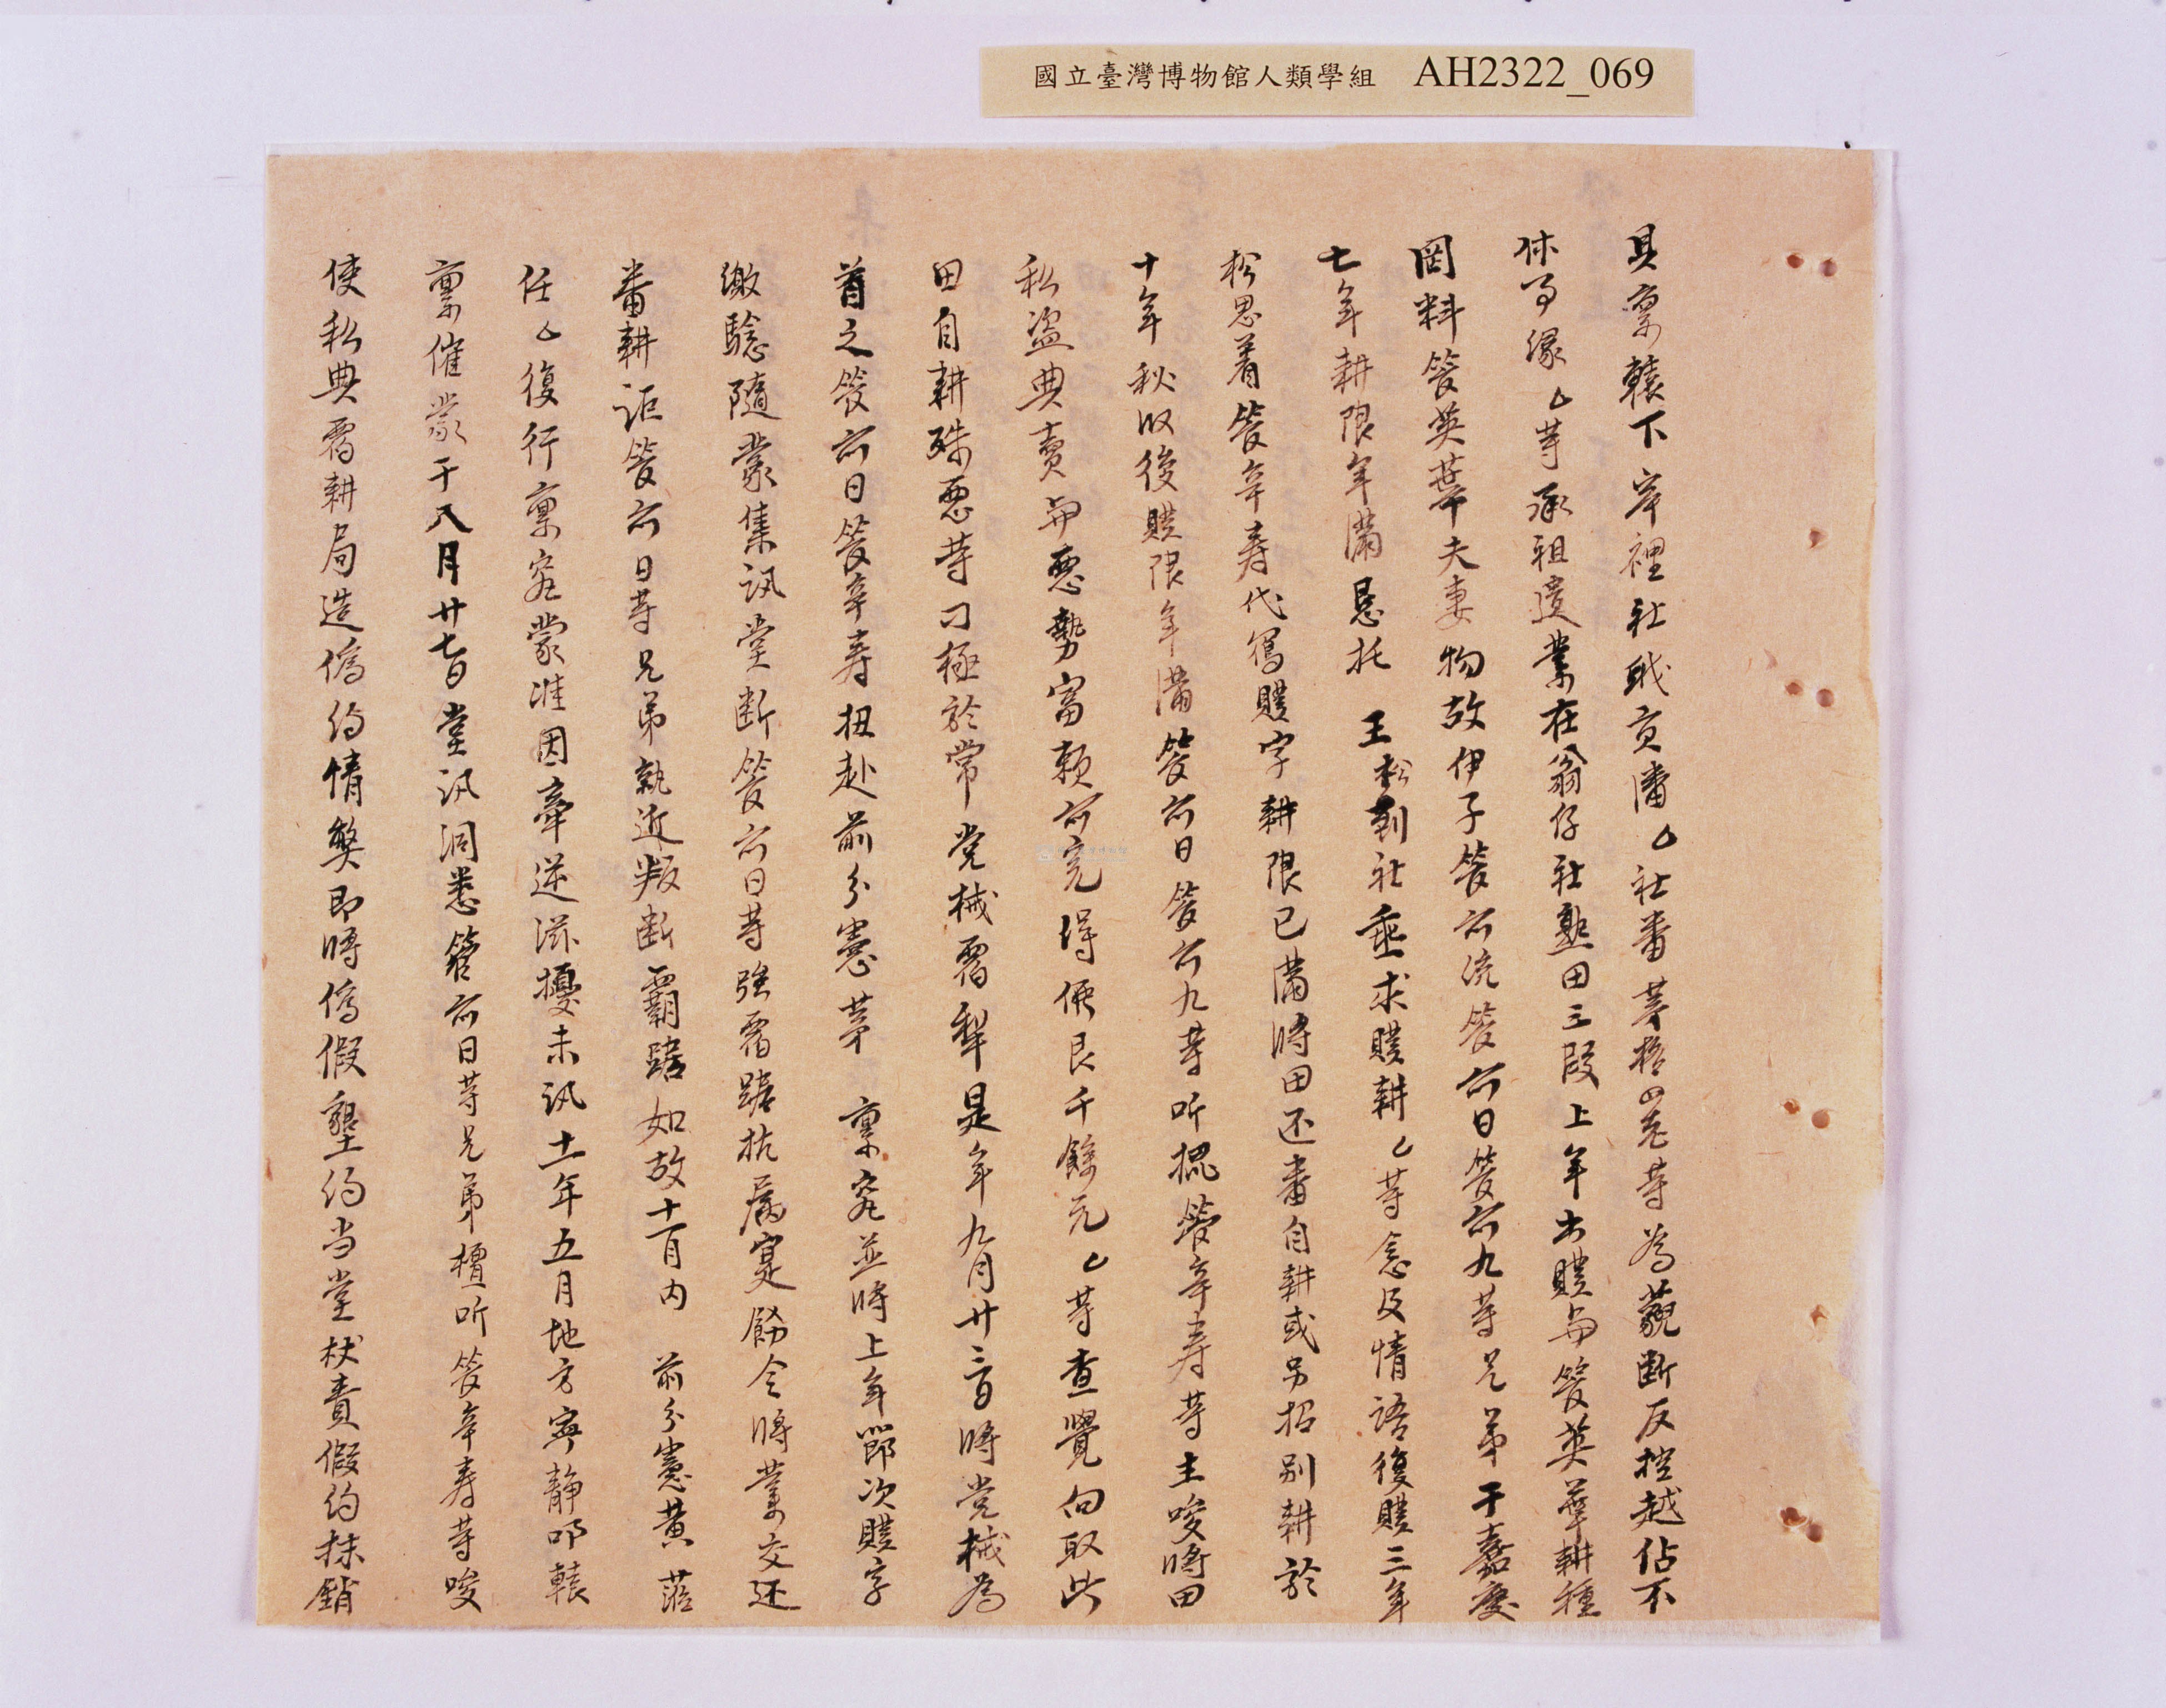 國立臺灣博物館人類學組 AH2322_069
具稟轅下岸裡社戢貢潘厶社番茅格四老等為藐断反控越佔不
休事緣厶等承祖遺業在翁仔社熟田三段上年出贌与管英華耕種
罔料管英華夫妻物故伊子管六流管六日管六九等兄弟于嘉慶
七年耕限年滿恳托 王松到社垂求贌耕厶等念及情語復贌三年
松思着管辛寿代寫贌字耕限已滿將田还番自耕或另招別耕於
十年秋收後贌限年滿管六日管六九等听摁管辛寿等主唆將田
私盜典賣与惡勢富賴六完得価艮千餘元厶等查覺向取此
田自耕殊惡等刁極於常党械霸犁是年九月廿二日將党械為
首之管六日管辛寿扭赴前分憲茅 稟究並將上年節次贌字
繳驗隨蒙集訊堂断管六日等強霸踞抗厲寔飭令將業交还
番耕詎管六日等兄弟執近叛断霸踞如故十一月内 前分憲黃蒞
任厶復行稟究蒙准因牽逆滋擾未訊十一年五月地方寧静叩轅
稟催蒙于八月廿七日堂訊洞悉管六日等兄弟擅听管辛寿等唆
使私典霸耕局造偽約情弊即將偽假墾約当堂杖責假約抹銷